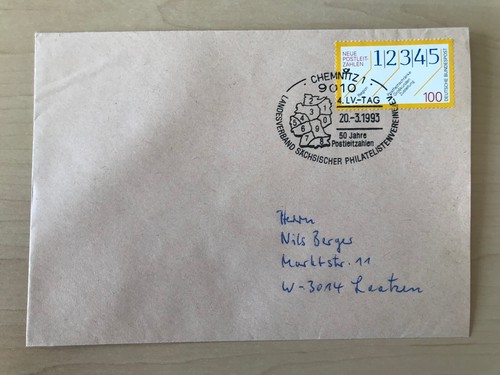 NEUE
POSTLEIT
ZAHLEN
12345
DEUTSCHE BUNDESPOST
100
CHEMNITZ 1
9010
4. LV.-TAG
20.-3.1993
50 Jahre
Postleitzahlen
LANDESVERBAND SÄCHSISCHER PHILATELISTENVEREINE
2
1
3
0
5
4
6
9
7
8
Herrn
Nils Berger
Marktstr. 11
W-3014 Laatzen